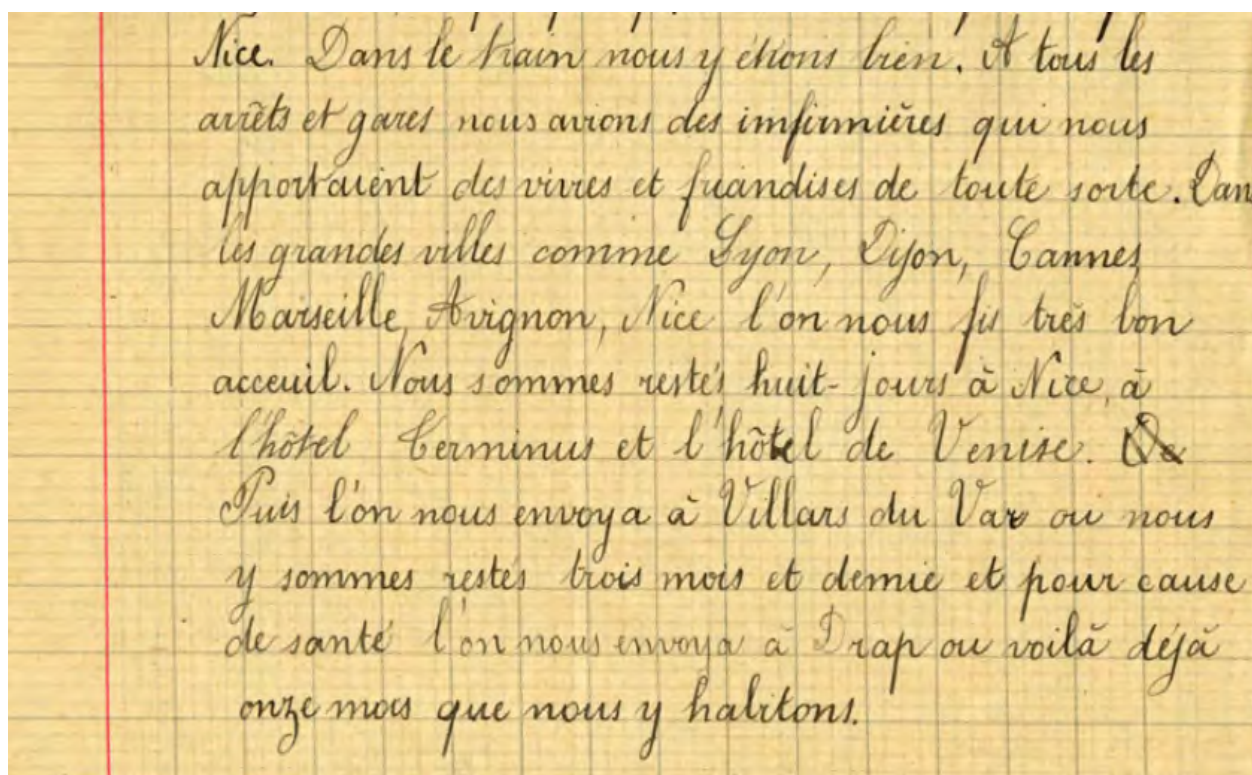 Nice. Dans le train nous y étions bien. A tous les
arrêts et gares nous avions des imfirmières qui nous
apportaient des vivres et friandises de toute sorte. Dans
les grandes villes comme Lyon, Dijon, Cannes,
Marseille, Avignon, Nice l'on nous fis très bon
acceuil. Nous sommes restés huit-jours à Nice, à
l'hôtel Terminus et l'hôtel de Venise. De
Puis l'on nous envoya à Villars du Var ou nous
y sommes restés trois mois et demie et pour cause
de santé l'on nous envoya à Drap ou voilà déjà
onze mois que nous y habitons.